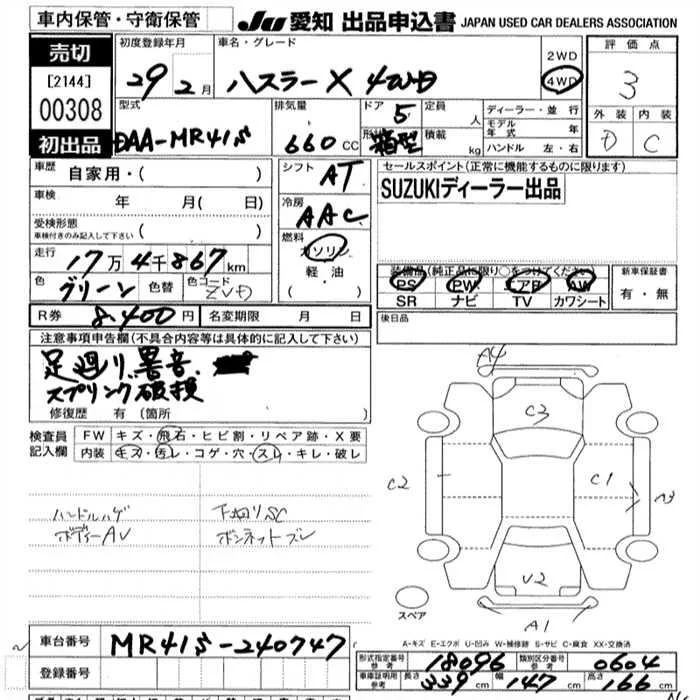 車内保管・守衛保管
JU 愛知 出品申込書 JAPAN USED CAR DEALERS ASSOCIATION
売切
[2144]
00308
初出品
初度登録年月
29 年 2 月
車名・グレード
ハスラー X 4WD
2WD
4WD
評価点
3
外装 内装
D C
型式
DAA-MR41S
排気量
660 CC
ドア 5
形状 箱型
定員 人
積載 kg
ディーラー・並行
モデル年式 年
ハンドル 左・右
車歴
自家用・( )
車検
年 月( 日)
受検形態
車検付きのみ記入して下さい ( )
走行
17万4千867km
色 グリーン 色替 色コード ZVD
シフト AT
冷房 AAC
燃料
ガソリン
軽・油
・( )
セールスポイント(正常に機能するものに限ります)
SUZUKIディーラー出品
装備品(純正品に限り○をつけてください)
PS PW エアB AW
SR ナビ TV カワシート
新車保証書
有・無
後日品
R券 8,400円 名変期限 月 日
注意事項申告欄(不具合内容等は具体的に記入して下さい)
足廻り、異音、
スプリング破損
修復歴 有(箇所 )
検査員
記入欄
FW キズ・飛石・ヒビ割・リペア跡・X要
内装 キズ・汚レ・コゲ・穴・スレ・キレ・破レ
ハンドルハゲ 下廻りSC
ボディーAV ボンネットズレ
A4
C3
C2
C1
V2
A1
スペア
A-キズ E-エクボ U-凹み W-補修跡 S-サビ C-腐食 XX-交換済
車台番号 MR41S-240747
登録番号
形式指定番号 参考 18096
類別区分番号 参考 0604
車庫証明用 参考 長さ 339 cm 幅 147 cm 高さ 166 cm